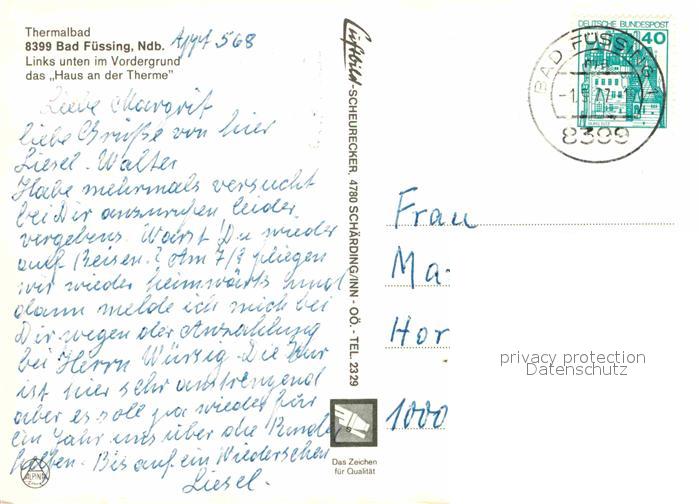 Thermalbad
8399 Bad Füssing, Ndb. Appt 568
Links unten im Vordergrund
das „Haus an der Therme"
Liebe Margrit
liebe Grüße von hier
Liesel. Walter
Habe mehrmals versucht
bei Dir anzurufen leider
vergebens. Warst Du wieder
auf Reisen? Am 7/9 fliegen
wir wieder heimwärts und
dann melde ich mich bei
Dir wegen der Anzahlung
bei Herrn Würzig. Die Kur
ist hier sehr anstrengend
aber es soll ja wieder für
ein Jahr uns über die Runde
helfen. Bis auf ein Wiedersehen
Liesel.
ALPINA
Luftbild-SCHEURECKER, 4780 SCHÄRDING/INN - OÖ. - TEL. 23 29
Das Zeichen
für Qualität
DEUTSCHE BUNDESPOST
40
BAD FÜSSING 1
8399
Frau
Ma
Hor
1000
privacy protection
Datenschutz